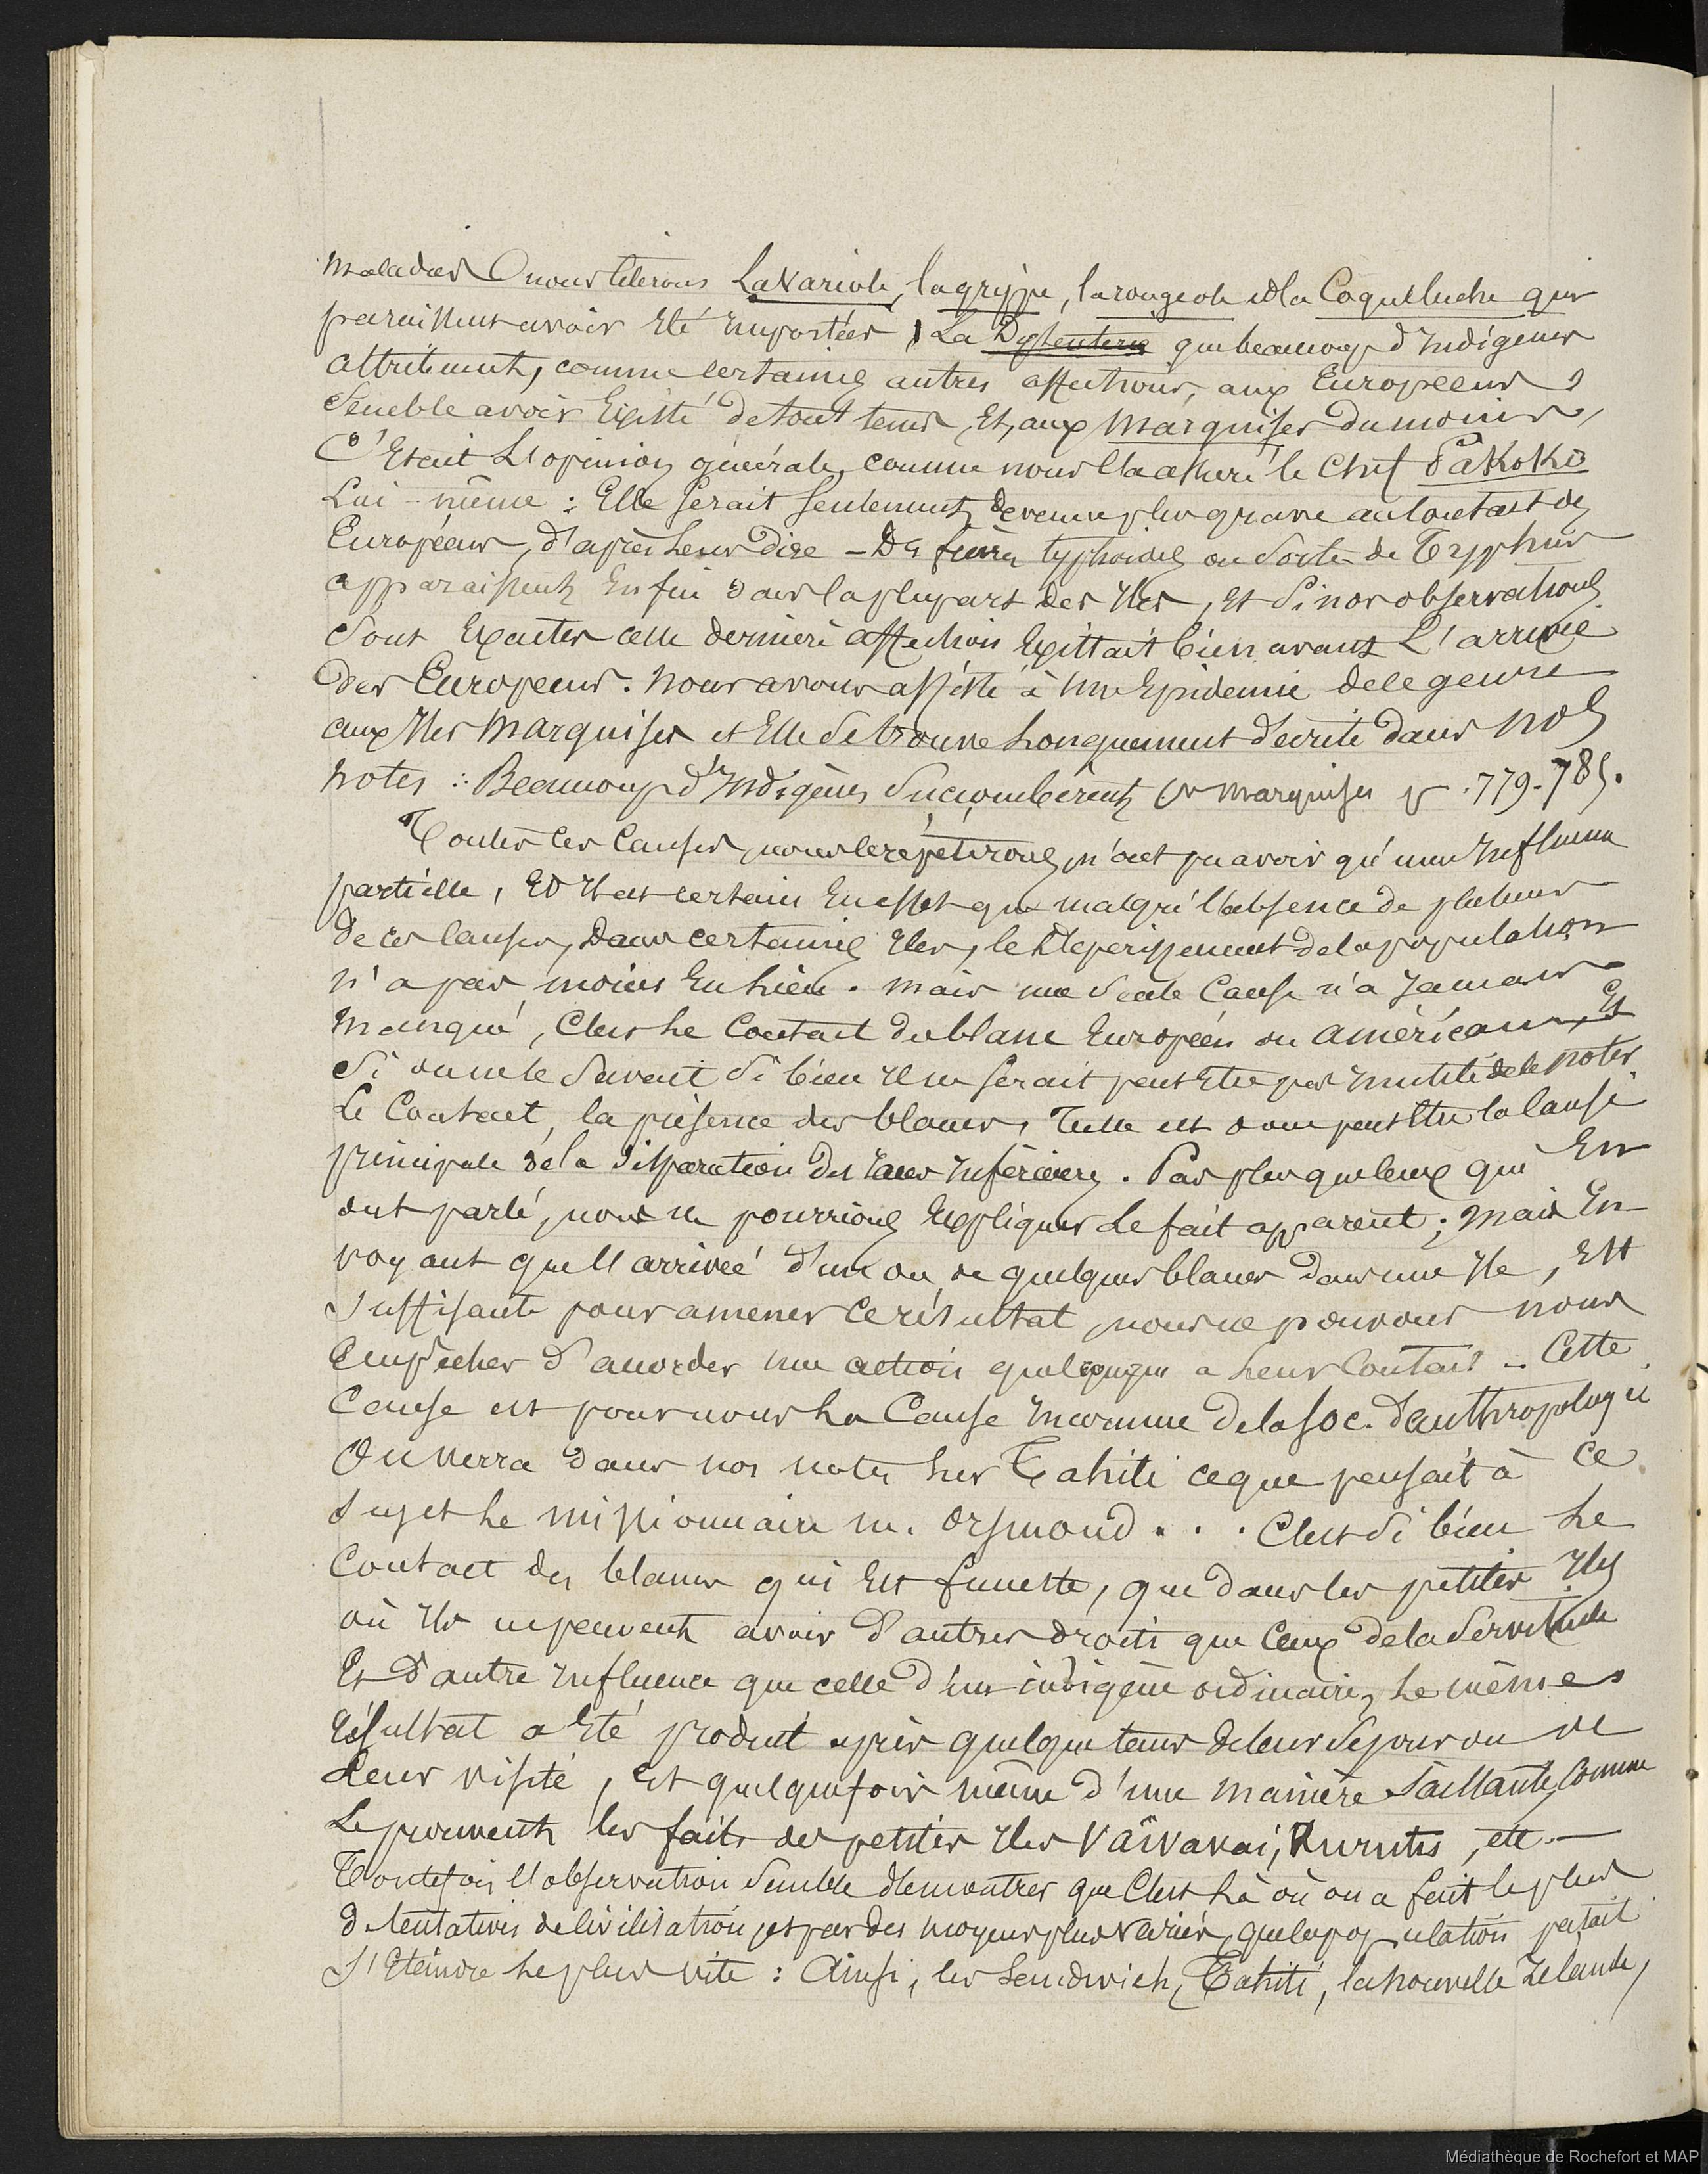 maladies nous citerons La Variole, la grippe, la rougeole et la Coqueluche qui
paraissent avoir été importées, La Dyssenterie que beaucoup d'Indigènes
attribuent, comme certaines autres affections, aux Européens,
Semble avoir Existé de tout tems, Et, aux Marquises du moins,
C'Etait L'opinion générale, comme nous l'a assuré le Chef Pakoko
Lui-même : Elle serait seulement devenue plus grave au contact des
Européens, d'après Leur dire – Des fièvres typhoïdes ou Sorte de Typhus
apparaissent Enfin dans la plupart des Iles, et Si nos observations
Sont Exactes cette dernière affection Existait bien avant L'arrivée
des Européens. Nous avons assisté à une Epidémie de ce genre
aux Iles Marquises et Elle se trouve Longuement décrite dans nos
notes : Beaucoup d'Indigènes Succombèrent Marquises p. 779-785.
Toutes ces Causes, nous le répétrons, n'ont pu avoir qu'une Influence
partielle, Et Il est certain En effet que malgré l'absence de plusieurs
de ces Causes, Dans certaines Iles, le Dépérissement de la population
n'a pas moins Eu Lieu. Mais une Seule Cause n'a Jamais
Manqué, C'est Le Contact du blanc Européen ou américain, Et
Si on ne le Savait Si bien Il ne serait peut Etre pas Inutile de le noter.
Le Contact, la présence des blancs, Telle est donc peut Etre la Cause
principale de la disparation des races Inférieures. Pas plus que ceux qui En
ont parlé, nous ne pourrions Expliquer Le fait apparent ; Mais En
voyant que l'arrivée d'un ou de quelques blancs dans une Ile, Est
Suffisante pour amener ce résultat, nous ne pouvons nous
Empêcher d'accorder une action quelconque a Leur Contact – Cette
Cause est pour nous La Cause Inconnue de la Soc. d'anthropologie
On verra dans nos notes Sur Tahiti ce que pensait à ce
Sujet Le missionnaire M. Orsmond . . . C'est Si bien Le
Contact des blancs qui Est funeste, que dans les petites Iles
où Ils ne peuvent avoir d'autres droits que Ceux de la Servitude
Et d'autre Influence que celle d'un indigène ordinaire, Le même
résultat a Eté produit après quelque tems de leur Séjour ou de
Leur visite, Et quelquefois même d'une manière Saillante, Comme
Le prouvent les faits des petites Iles Vaïvavai, Rurutu, etc.—
Toutefois l'observation Semble démontrer que C'est Là où on a fait le plus
de tentatives de Civilisation, et par des moyens plus variés, que la population parait
S'Eteindre Le plus vite : Ainsi, les Sandwich, Tahiti, la Nouvelle Zelande,
Médiathèque de Rochefort et MAP